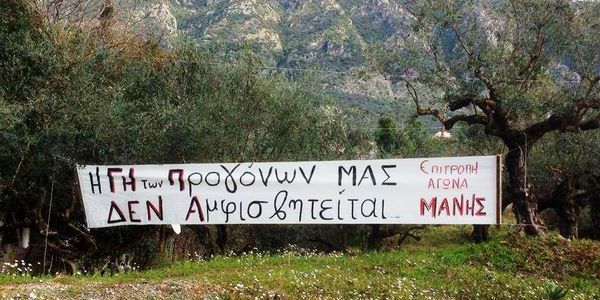 Η ΓΗ των Προγόνων ΜΑΣ
ΔΕΝ Αμφισβητείται...
ΕΠΙΤΡΟΠΗ
ΑΓΩΝΑ
ΜΑΝΗΣ